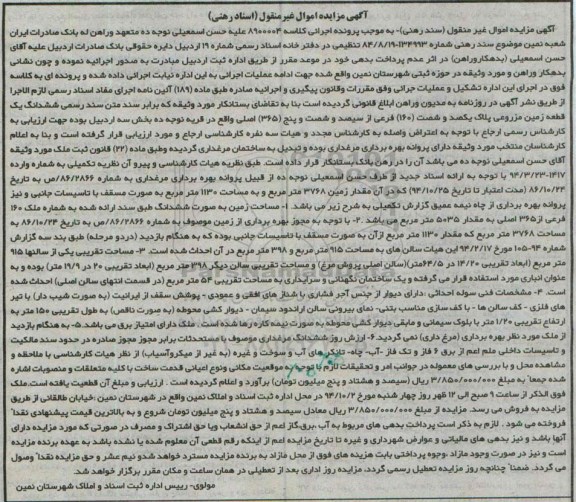 آگهی مزایده اموال غیر منقول (اسناد رهنی)
آگهی مزایده اموال غیر منقول (سند رهنی)- به موجب پرونده اجرائی کلاسه ۸۹۰۰۰۰۴ علیه حسن اسمعیلی نوجه ده متعهد وراهن له بانک صادرات ایران
شعبه نمین موضوع سند رهنی شماره ۱۳۴۹۹۳-۸۴/۸/۱۹ تنظیمی در دفتر خانه اسناد رسمی شماره ۱۹ اردبیل دایره حقوقی بانک صادرات اردبیل علیه آقای
حسن اسمعیلی (بدهکار وراهن) در اثر عدم پرداخت بدهی خود در موعد مقرر از طریق اداره ثبت اردبیل مبادرت به صدور اجرائیه نموده و چون نشانی
بدهکار وراهن و مورد وثیقه در حوزه ثبتی شهرستان نمین واقع شده جهت ادامه عملیات اجرائی به این اداره نیابت اجرائی داده شده و پرونده ای به کلاسه
فوق در اجرای این اداره تشکیل و عملیات جرائی وفق مقررات وقانون پیگیری و اجرائیه صادره طبق ماده (۱۸۹) آئین نامه اجرای مفاد اسناد رسمی لازم الاجرا
از طریق نشر آگهی در روزنامه به مدیون وراهن ابلاغ قانونی گردیده است بنا به تقاضای بستانکار مورد وثیقه که برابر سند متن سند رسمی ششدانگ یک
قطعه زمین مزروعی پلاک یکصد و شصت (۱۶۰) فرعی از سیصد و شصت و پنج (۳۶۵) اصلی واقع در قریه نوجه ده بخش سه اردبیل بوده جهت ارزیابی به
کارشناس رسمی ارجاع با توجه به اعتراض واصله به کارشناس مجدد و هیات سه نفره کارشناسی ارجاع و مورد ارزیابی قرار گرفته است و بنا به اعلام
کارشناسان منتخب مورد وثیقه دارای پروانه بهره برداری مرغداری بوده و تبدیل به ساختمان مرغداری گردیده وطبق ماده (۲۲) قانون ثبت ملک مورد وثیقه
آقای حسن اسمعیلی نوجه ده می باشد آن را در رهن بانک بستانکار قرار داده است. طبق نظریه هیات کارشناسی و پیرو آن نظریه تکمیلی به شماره وارده
۱۴۱۷-۹۴/۳/۲۳ با توجه به ارائه اسناد جدید از طرف حسن اسمعیلی نوجه ده از قبیل پروانه بهره برداری مرغداری به شماره ۸۶/۲۸۶۶/ص به تاریخ
۸۶/۱۰/۲۴ (مدت اعتبار تا تاریخ ۹۴/۱۰/۲۵) که در آن مقدار زمین ۳۷۶۸ متر مربع و به مساحت ۱۱۳۰ متر مربع به صورت مسقف با تاسیسات جانبی و نیز
پروانه بهره برداری از چاه نیمه عمیق گزارش تکمیلی به شرح زیر می باشد. ۱- مساحت زمین به صورت ششدانگ طبق سند ارائه شده به شماره ملک ۱۶۰
فرعی از۳۶۵ اصلی به مقدار ۵۰۳۵ متر مربع می باشد ۲- با توجه به مجوز بهره برداری از زمین موصوف به شماره ۸۶/۲۸۶۶/ص به تاریخ ۸۶/۱۰/۲۴ به
مساحت ۳۷۶۸ متر مربع که مقدار ۱۱۳۰ متر مربع ازآن به صورت مسقف با تاسیسات جانبی بوده که به هنگام بازدید (دردو مرحله) طبق بند سه گزارش
شماره ۹۴-۱۰۵ مورخ ۹۴/۲/۱۷ این هیات سالن های به مساحت ۹۱۵ متر مربع و ۳۹۸ متر مربع در آن احداث شده است. ۳- مساحت تقریبی یکی از سالنها ۹۱۵
متر مربع (ابعاد تقریبی ۱۴/۲۰ در ۶۴/۵متر)(سالن اصلی پرورش مرغ) و مساحت تقریبی سالن دیگر ۳۹۸ متر مربع (ابعاد تقریبی ۲۰ در ۱۹/۹ متر) بوده و به
عنوان انباری مورد استفاده قرار می گرفته و یک ساختمان نگهبانی و سرایداری به مساحت تقریبی ۵۴ متر مربع (در قسمت انتهای سالن اصلی) احداث شده
است. ۴- مشخصات فنی سوله احداثی :دارای دیوار از جنس آجر فشاری با شناژ های افقی و عمودی - پوشش سقف از ایرانیت (به صورت شیب دار) با تیر
های فلزی - کف سالن ها - با کف سازی مناسب بتنی- نمای بیرونی سالن اراندود سیمان - دیوار کشی محوطه (به صورت ناقص) به طول تقریبی ۱۵۰ متر به
ارتفاع تقریبی ۱/۲۰ متر با بلوک سیمانی و مابقی دیوار کشی محوطه به صورت نیمه کاره رها شده است. ملک دارای امتیاز برق می باشد.۵- به هنگام بازدید
از ملک مورد نظر بهره برداری (مرغ داری) نمی گردید.۶- ارزش روز ششدانگ ملک موصوف با مستحدثات برابر مجوز مجوز صادره در حدود سند مالکیت
و تاسیسات داخلی ملم اعم از برق ۶ فاز و تک فاز -آب- چاه- مخزن های آب و سوخت و غیره (به غیر از میکروآسیاب) از نظر هیات کارشناسی با ملاحظه و
مشاهده محل و با بررسی های معموله در جوانب امر و تحقیقات لازم با توجه به موقعیت مکانی ونوع اعیانی قدمت ساخت با کلیه متعلقات و منصوبات اشاره
شده جمعا به مبلغ ۳/۸۵۰/۰۰۰/۰۰۰ ریال (سیصد و هشتاد و پنج میلیون تومان) برآورد و اعلام گردیده است . ارزیابی و مبلغ آن قطعیت یافته است.ملک
فوق الذکر از ساعت ۹ صبح الی ۱۲ ظهر روز چهار شنبه مورخ ۹۴/۱۰/۲ در محل اداره ثبت اسناد و املاک نمین واقع در شهرستان نمین :خیابان طالقانی از طریق
مزایده به فروش می رسد. مزایده از مبلغ ۳/۸۵۰/۰۰۰/۰۰۰ ریال معادل سیصد و هشتاد و پنج میلیون تومان شروع و به بالاترین قیمت پیشنهادی نقدا
فروخته می شود . لازم به ذکر است پرداخت بدهی های مربوط به آب ،برق،گاز اعم از حق انشعاب ویا حق اشتراک و مصرف در صورتی که مورد مزایده دارای
آنها باشد و نیز بدهی های مالیاتی و عوارض شهرداری و غیره تا تاریخ مزایده اعم از اینکه رقم قطعی آن معلوم شده یا نشده باشد به عهده برنده مزایده
است و نیز در صورت وجود مازاد ،وجوه پرداختی بابت هزینه های فوق از محل مازاد به برنده مزایده مسترد خواهد شدو نیم عشر و حق مزایده نقدا وصول
می گردد. ضمنا چنانچه روز مزایده تعطیل رسمی گردد، مزایده روز اداری بعد از تعطیلی در همان ساعت و مکان مقرر برگزار خواهد شد.
مولوی- رییس اداره ثبت اسناد و املاک شهرستان نمین